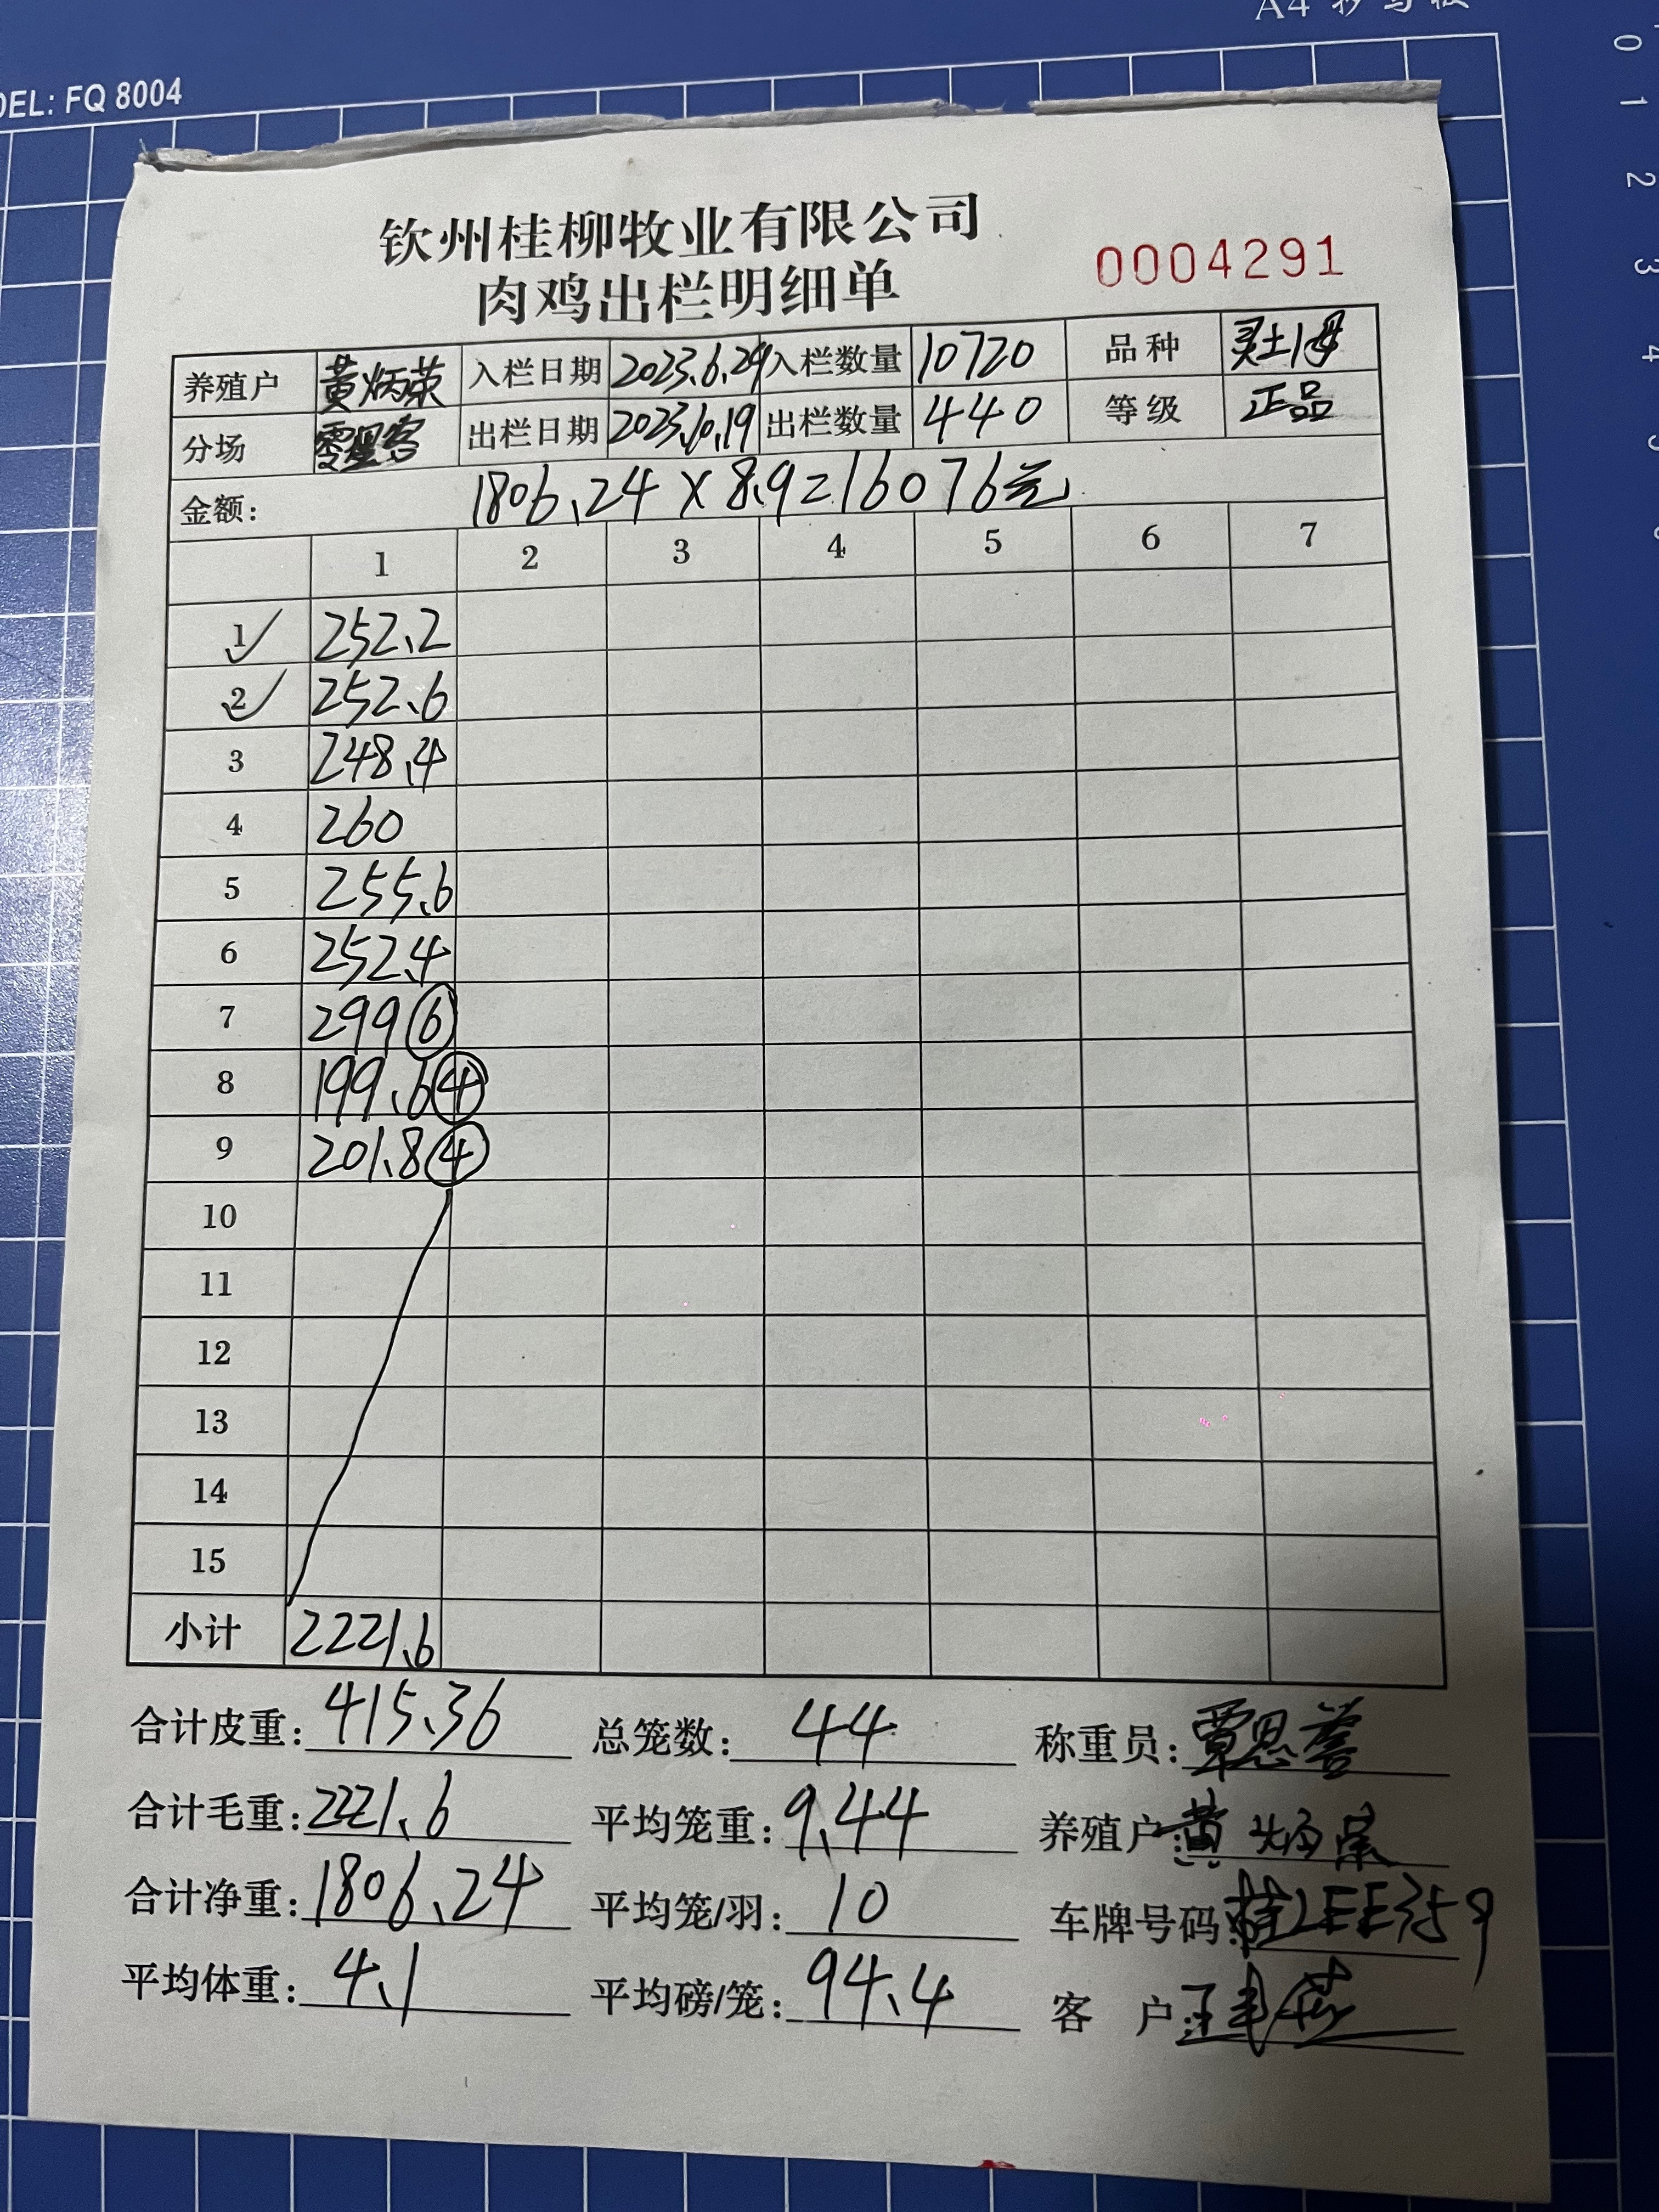 DEL: FQ 8004
A4
0
1
2
3
4
5
钦州桂柳牧业有限公司
肉鸡出栏明细单
0004291
养殖户 黄炳荣 入栏日期 2023.6.29 入栏数量 10720 品种
分场 出栏日期 2023.10.19 出栏数量 440 等级 正品
金额: 1806.24 × 8.9=16076元
1 2 3 4 5 6 7
1 ✓ 252.2
2 ✓ 252.6
3 248.4
4 260
5 255.6
6 252.4
7 299 ⑥
8 199.6 ④
9 201.8 ④
10
11
12
13
14
15
小计 2221.6
合计皮重: 415.36 总笼数: 44 称重员: 覃恩誉
合计毛重: 2221.6 平均笼重: 9.44 养殖户: 黄炳荣
合计净重: 1806.24 平均笼/羽: 10 车牌号码: 桂LEE359
平均体重: 4.1 平均磅/笼: 94.4 客 户: